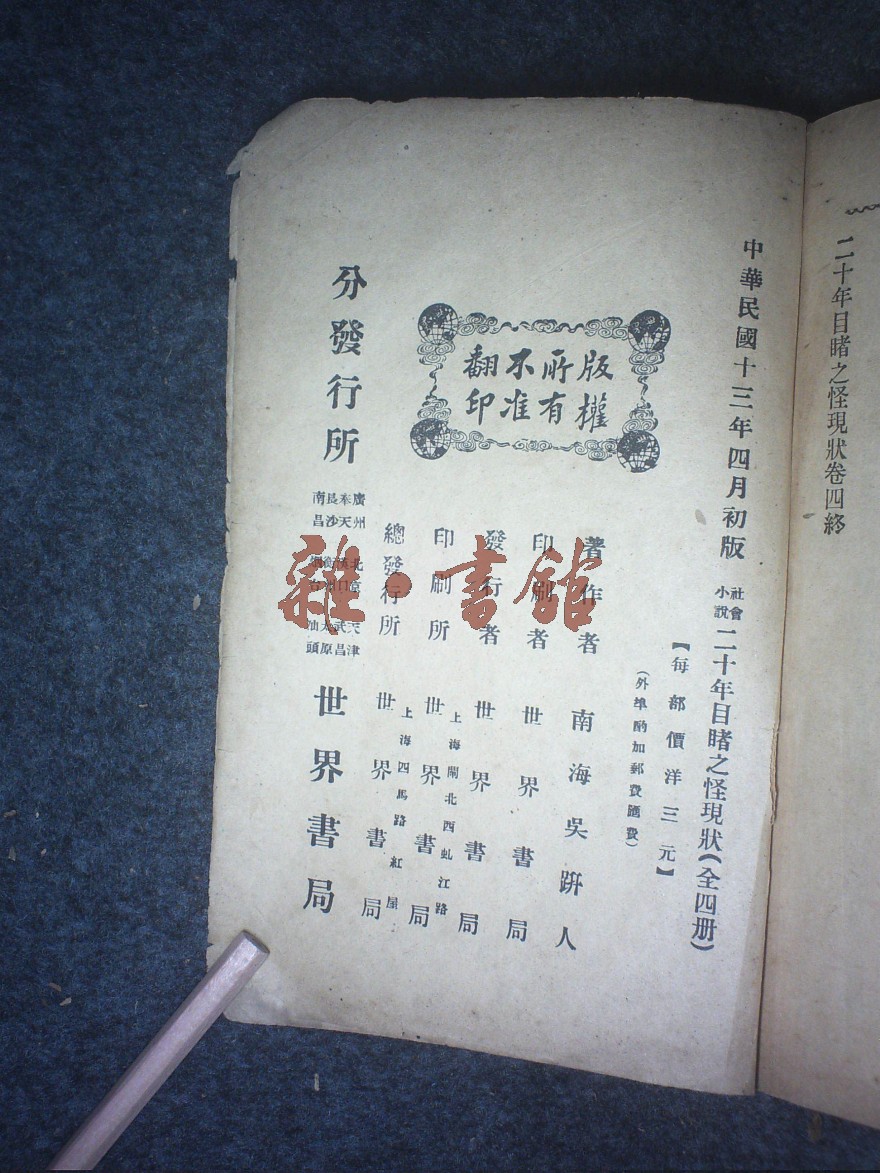 二十年目睹之怪現狀卷四終
中華民國十三年四月初版
社會
小說
二十年目睹之怪現狀(全四册)
【每部價洋三元】
(外埠酌加郵費匯費)
版權
所有
不准
翻印
著作者 南海吳趼人
印刷者 世界書局
發行者 世界書局
印刷所 上海閘北西虬江路 世界書局
總發行所 上海四馬路紅屋 世界書局
分發行所
廣州 奉天 長沙 南昌
北京 漢口
天津 武昌 太原 汕頭
世界書局
雜·書館